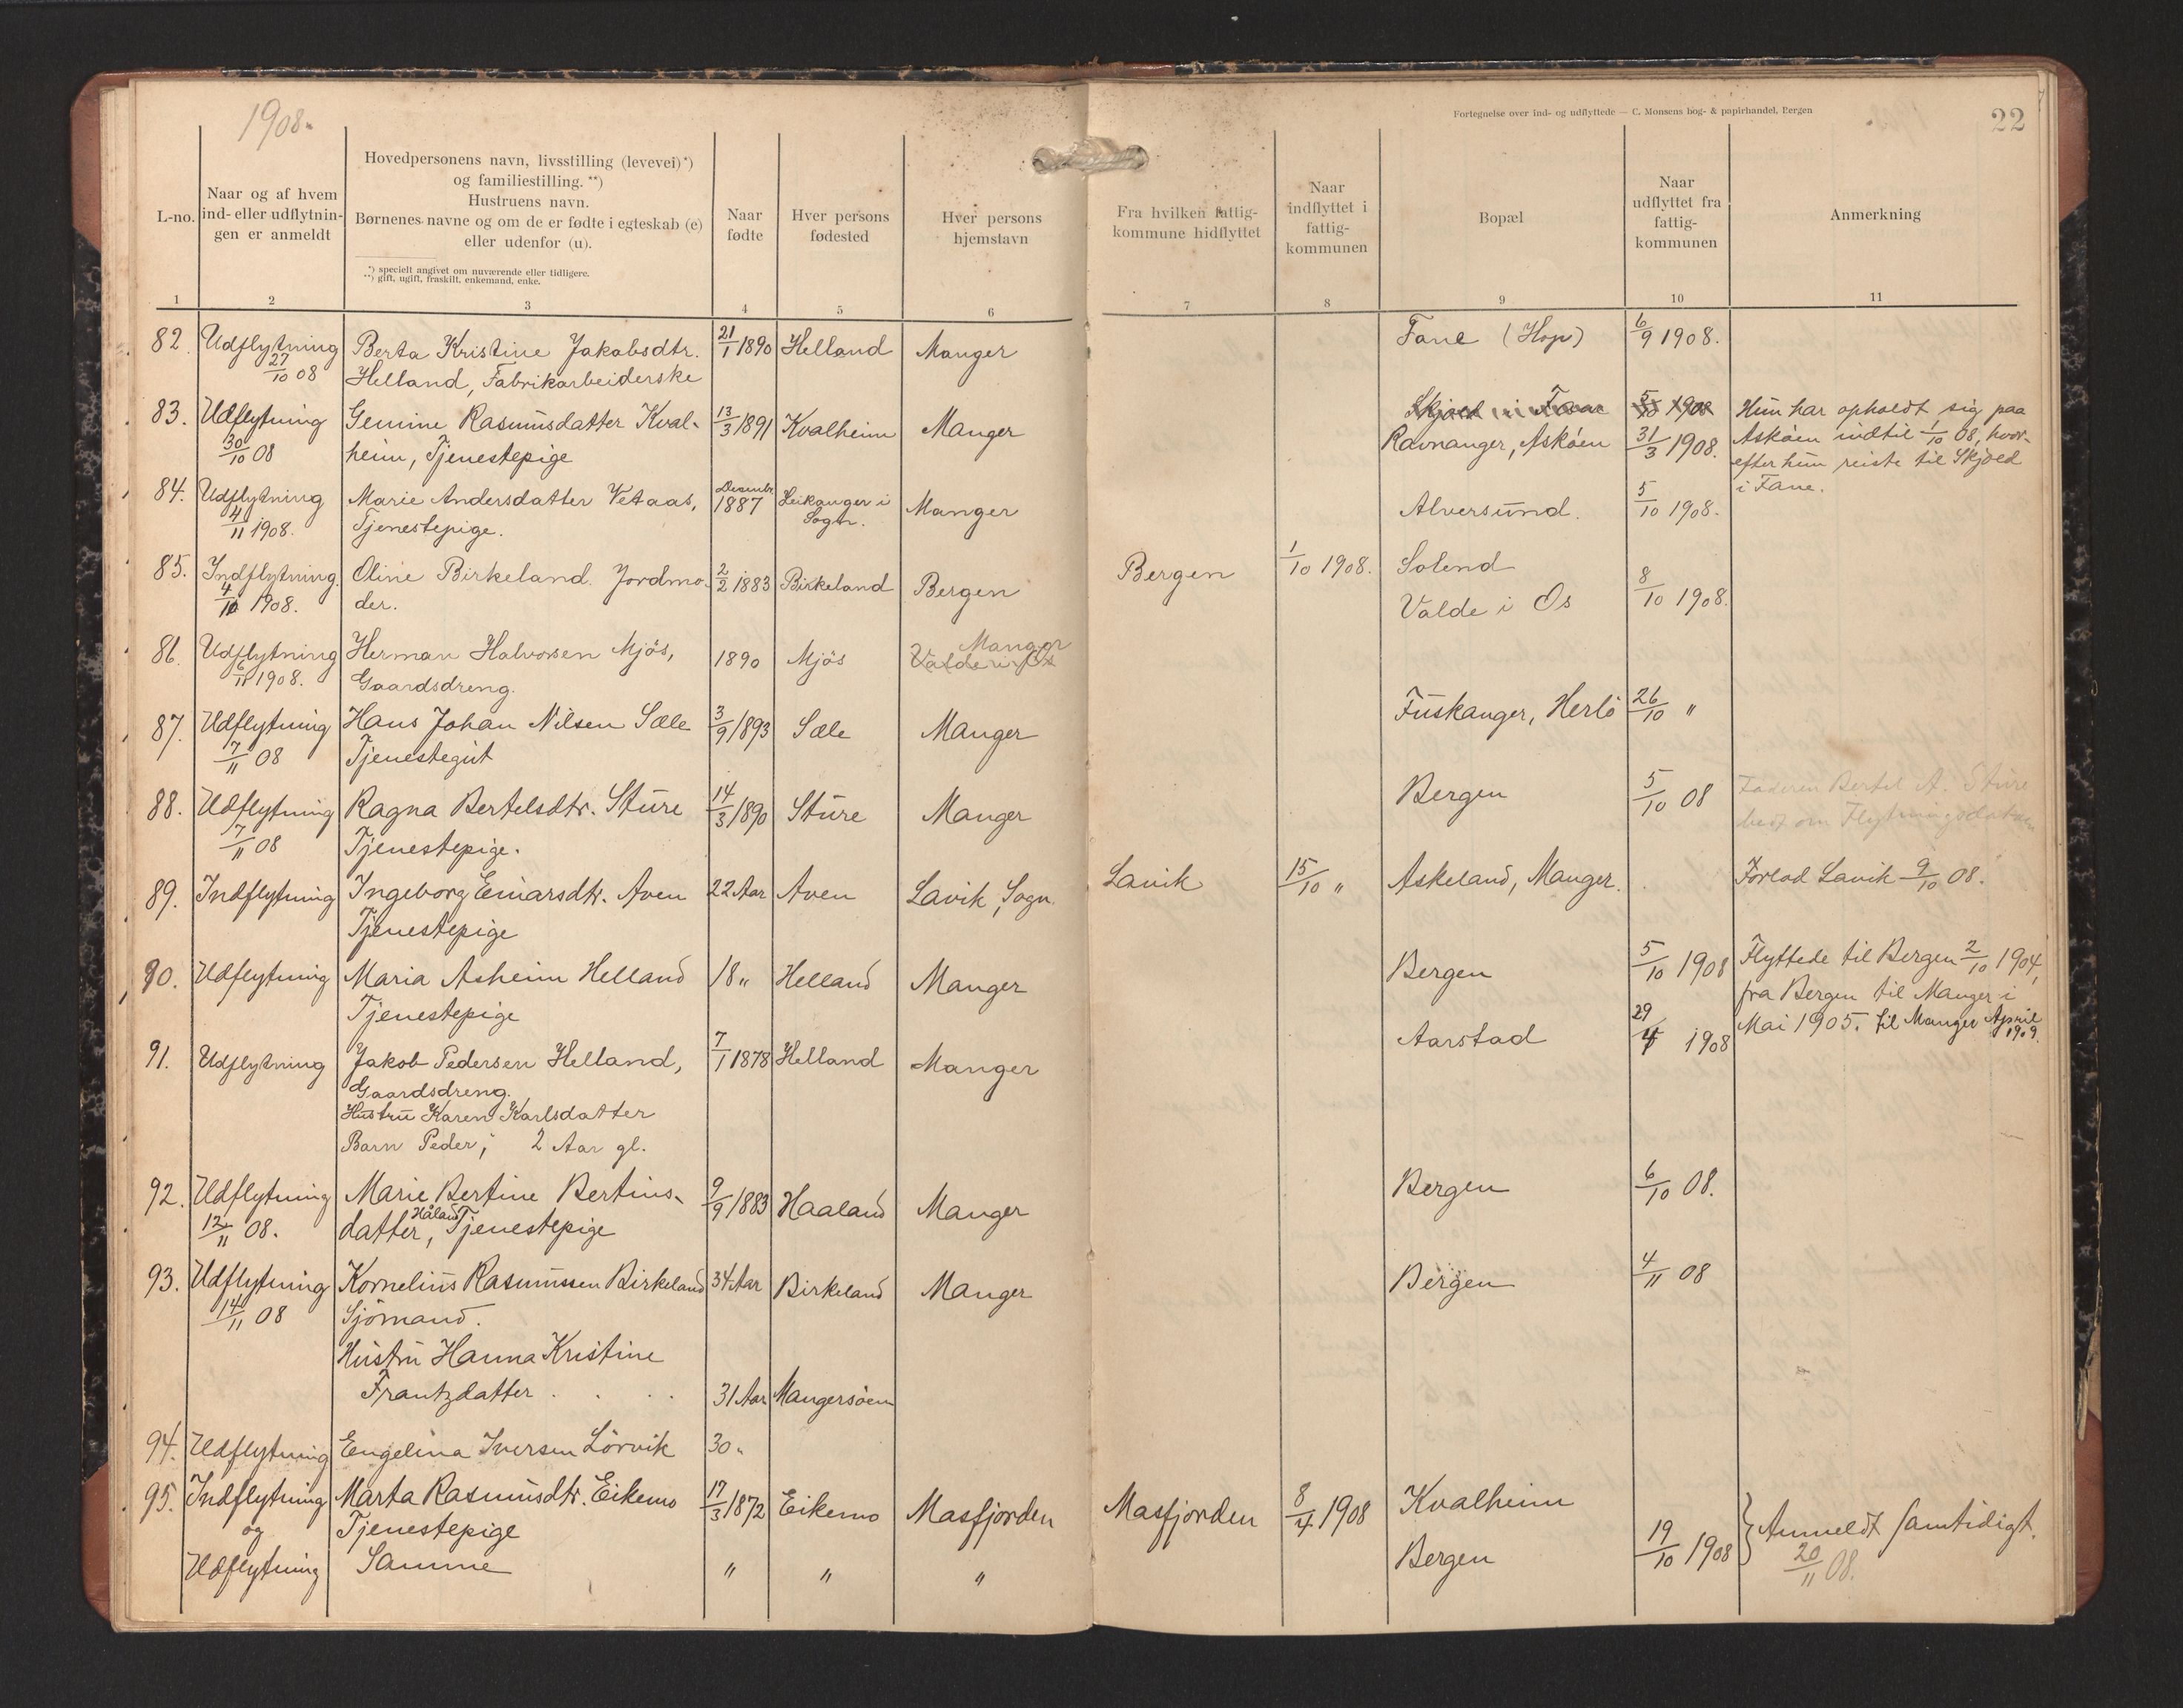 1908.
Fortegnelse over ind- og udflyttede — C. Monsens bog- & papirhandel, Bergen
22
L-no.
Naar og af hvem
ind- eller udflytnin-
gen er anmeldt
Hovedpersonens navn, livsstilling (levevei)*)
og familiestilling. **)
Hustruens navn.
Børnenes navne og om de er fødte i egteskab (e)
eller udenfor (u).
*) specielt angivet om nuværende eller tidligere.
**) gift, ugift, fraskilt, enkemand, enke.
Naar
fødte
Hver persons
fødested
Hver persons
hjemstavn
Fra hvilken fattig-
kommune hidflyttet
Naar
indflyttet i
fattig-
kommunen
Bopæl
Naar
udflyttet fra
fattig-
kommunen
Anmerkning
1 2 3 4 5 6 7 8 9 10 11
82. Udflytning Berta Kristine Jakobsdtr. 21/1 1890 Helland Manger Fane (Hop) 6/9 1908.
27/10 08 Helland, Fabrikarbeiderske
83. Udflytning Gemine Rasmusdatter Kval- 13/3 1891 Kvalheim Manger Skjold i Fane 5/10 1908 Hun har opholdt sig paa
30/10 08 heim, Tjenestepige Ravnanger, Askøen 31/3 1908. Askøen indtil 1/10 08, hvor-
efter hun reiste til Skjold
i Fane.
84. Udflytning Marie Andersdatter Vetaas, Decembr. 1887 Leikanger i Sogn. Manger Alversund. 5/10 1908.
4/11 1908. Tjenestepige.
85. Indflytning. Oline Birkeland. Jordmo- 2/2 1883 Birkeland Bergen Bergen 1/10 1908. Solend
4/10 1908. der. Valde i Os 8/10 1908.
86. Udflytning Herman Halvorsen Mjös, 1890 Mjös Manger
6/11 1908. Gaardsdreng. Valde i Os
87. Udflytning Hans Johan Nilsen Sæle 3/9 1893 Sæle Manger Fuskanger, Herlö 26/10 "
7/11 08 Tjenestegut
88. Udflytning Ragna Bertelsdtr. Sture 14/3 1890 Sture Manger Bergen 5/10 08 Faderen Bertel A. Sture
7/11 08 Tjenestepige. om Flytningsdatum
89. Indflytning Ingeborg Einarsdtr. Aven 22 Aar Aven Lavik, Sogn. Lavik 15/10 " Askeland, Manger. Forlod Lavik 9/10 08.
Tjenestepige
90. Udflytning Maria Asheim Helland 18 " Helland Manger Bergen 5/10 1908 Flyttede til Bergen 2/10 1904,
Tjenestepige fra Bergen til Manger i
Mai 1905. til Manger April 1909.
91. Udflytning Jakob Pedersen Helland, 7/1 1878 Helland Manger Aarstad 29/4 1908
Gaardsdreng.
Hustru Karen Karlsdatter
Barn Peder; 2 Aar gl.
92. Udflytning Marie Bertine Bertins- 9/9 1883 Haaland Manger Bergen 6/10 08.
12/11 08. datter, Håland Tjenestepige
93. Udflytning Kornelius Rasmussen Birkeland 34 Aar Birkeland Manger Bergen 4/11 08
14/11 08 Sjömand.
Hustru Hanna Kristine
Frantzdatter . . . . 31 Aar Mangersöen
94. Udflytning Engelina Iversen Lörvik 30 "
95. Indflytning Marta Rasmusdtr. Eikemo 17/3 1872 Eikemo Masfjorden Masfjorden 8/4 1908 Kvalheim
og Tjenestepige
Udflytning Samme " " " Bergen 19/10 1908 } Anmeldt samtidigt.
20/11 08.